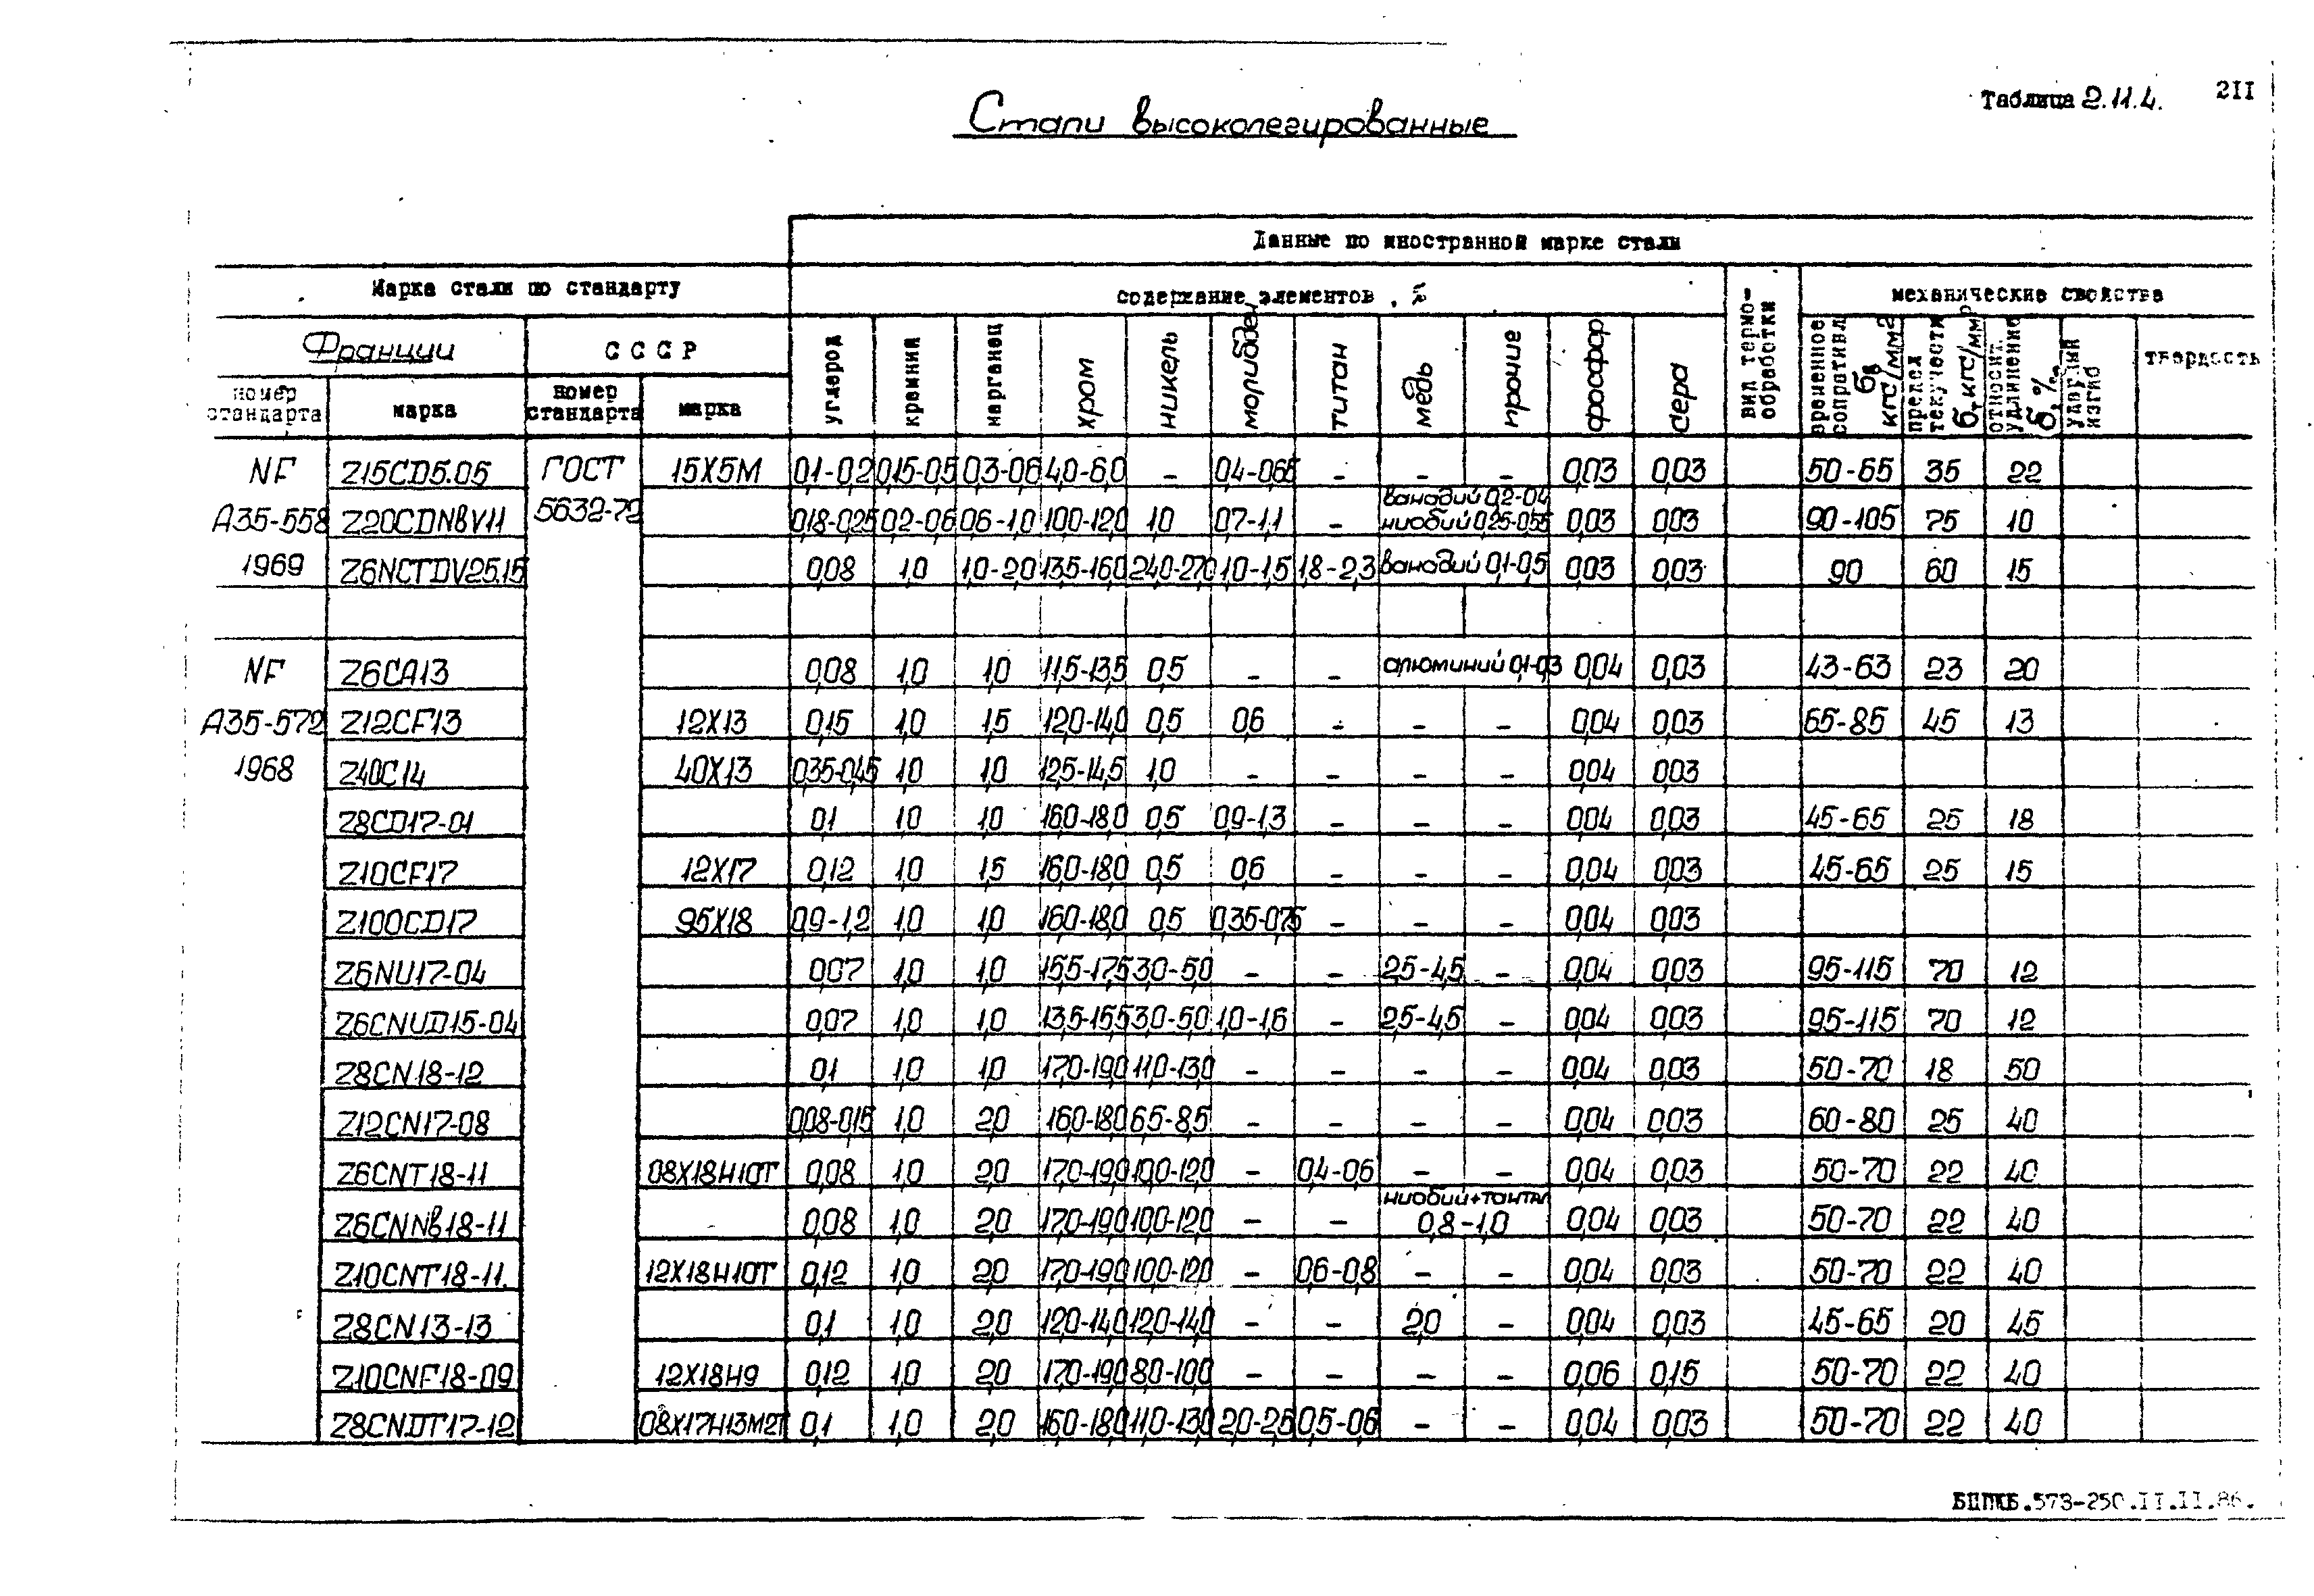 Таблица 2.11.4. 2II
Стали высоколегированные
Данные по иностранной марке стали
Марка стали по стандарту содержание элементов, % вид термо-обработки механические свойства
Франции СССР углерод кремний марганец хром никель молибден титан медь прочие фосфор сера временное сопротивл. бв кгс/мм2 предел текучести бт кгс/мм2 относит. удлинение б, % изгиб твердость
номер стандарта марка номер стандарта марка
NF Z15CD5.05 ГОСТ 15Х5М 0,1-0,2 0,15-0,5 0,3-0,6 4,0-6,0 - 0,4-0,65 - - - 0,03 0,03 50-65 35 22
А35-558 Z20CDNBV11 5632-72 0,18-0,25 0,2-0,6 0,6-1,0 10,0-12,0 1,0 0,7-1,1 - ванадий 0,2-0,4 ниобий 0,25-0,55 0,03 0,03 90-105 75 10
1969 Z6NCTDV25.15 0,08 1,0 1,0-2,0 13,5-16,0 24,0-27,0 1,0-1,5 1,8-2,3 ванадий 0,1-0,5 0,03 0,03 90 60 15
NF Z6CA13 0,08 1,0 1,0 11,5-13,5 0,5 - - алюминий 0,1-0,3 0,04 0,03 43-63 23 20
А35-572 Z12CF13 12Х13 0,15 1,0 1,5 12,0-14,0 0,5 0,6 - - - 0,04 0,03 65-85 45 13
1968 Z40C14 40Х13 0,35-0,45 1,0 1,0 12,5-14,5 1,0 - - - - 0,04 0,03
Z8CD17-01 0,1 1,0 1,0 16,0-18,0 0,5 0,9-1,3 - - - 0,04 0,03 45-65 25 18
Z10CF17 12Х17 0,12 1,0 1,5 16,0-18,0 0,5 0,6 - - - 0,04 0,03 45-65 25 15
Z100CD17 95Х18 0,9-1,2 1,0 1,0 16,0-18,0 0,5 0,35-0,75 - - - 0,04 0,03
Z6NU17-04 0,07 1,0 1,0 15,5-17,5 3,0-5,0 - - 2,5-4,5 - 0,04 0,03 95-115 70 12
Z6CNUD15-04 0,07 1,0 1,0 13,5-15,5 3,0-5,0 1,0-1,6 - 2,5-4,5 - 0,04 0,03 95-115 70 12
Z8CN18-12 0,1 1,0 1,0 17,0-19,0 11,0-13,0 - - - - 0,04 0,03 50-70 18 50
Z12CN17-08 0,08-0,15 1,0 2,0 16,0-18,0 6,5-8,5 - - - - 0,04 0,03 60-80 25 40
Z6CNT18-11 08Х18Н10Т 0,08 1,0 2,0 17,0-19,0 10,0-12,0 - 0,4-0,6 - - 0,04 0,03 50-70 22 40
Z6CNNB18-11 - 0,08 1,0 2,0 17,0-19,0 10,0-12,0 - - ниобий+тантал 0,8-1,0 0,04 0,03 50-70 22 40
Z10CNT18-11. 12Х18Н10Т 0,12 1,0 2,0 17,0-19,0 10,0-12,0 - 0,6-0,8 - - 0,04 0,03 50-70 22 40
Z8CN13-13 0,1 1,0 2,0 12,0-14,0 12,0-14,0 - - 2,0 - 0,04 0,03 45-65 20 45
Z10CNF18-09 12Х18Н9 0,12 1,0 2,0 17,0-19,0 8,0-10,0 - - - - 0,06 0,15 50-70 22 40
Z8CNDT17-12 08Х17Н13М2Т 0,1 1,0 2,0 16,0-18,0 11,0-13,0 2,0-2,5 0,5-0,6 - - 0,04 0,03 50-70 22 40
БЦПКБ.573-250.II.II.86.